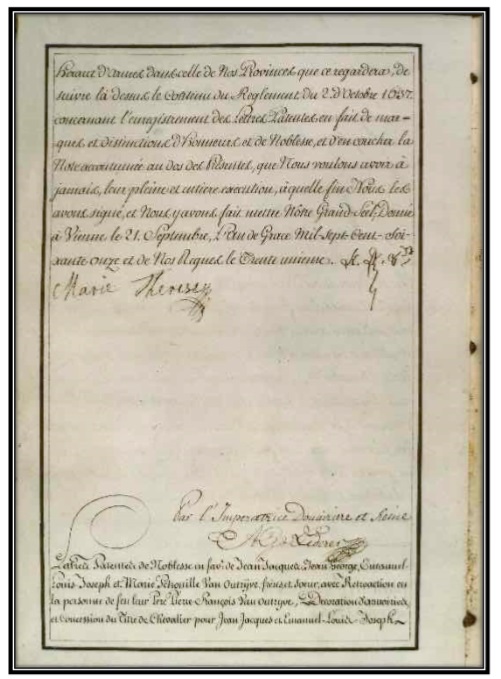 Heraut d'Armes dans celle de Nos Provinces que ce regardera, de
suivre là dessus le contenu du Reglement du 2. d'Octobre 1637.
concernant l'enregistrement des Lettres Patentes en fait de mar-
ques et distinctions d'Honneurs et de Noblesse, et d'en coucher la
Note accoutumée au dos des Présentes, que Nous voulons avoir à
jamais, leur pleine et entiere execution, à quelle fin Nous les
avons signé, et Nous y avons fait mettre Nôtre Grand Scel; Donné
à Vienne le 21. Septembre, l'An de Grace Mil-Sept-Cent-Soi-
xante Onze et de Nos Regnes le Trente unieme.
Marie Therese
Par l'Imperatrice Douairiere et Reine
Lettres Patentes de Noblesse en fav.r de Jean Jacques, Jean George, Emanuel-
Louis Joseph et Marie Petronille Van Outryve, freres et soeur, avec Retroaction en
la personne de feu leur Pere Pierre-François Van Outryve, Decoration d'armoiries,
et Concession du Titre de Chevalier pour Jean Jacques et Emanuel-Louis-Joseph